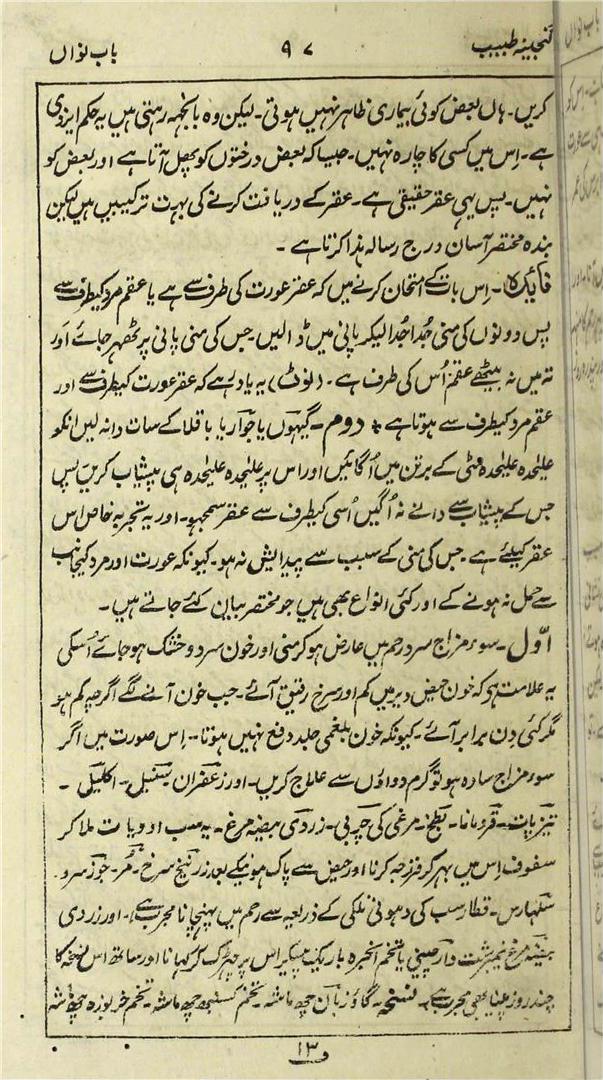 گنجینہ طبیب ۹۷ باب نواں
کریں۔ ہاں بعض کوئی بیماری ظاہر نہیں ہوتی۔ لیکن وہ بانجہہ رہتی ہیں یہ حکم ایزدی
ہے۔ اِس میں کسی کا چارہ نہیں۔ جیسا کہ بعض درختوں کو پھل آتا ہے اور بعض کو
نہیں۔ پس یہی عقر حقیقی ہے۔ عقر کے دریافت کرنے کی بہت ترکیبیں ہیں لیکن
بندہ مختصر آسان درج رسالہ ہذا کرتا ہے۔
فائدہ۔ اِس بات کے امتحان کرنے میں کہ عقر عورت کی طرف سے ہے یا عقم مرد کیطرف سے
پس دونوں کی منی جُدا جُدا لیکر پانی میں ڈالیں۔ جس کی منی پانی پر ٹھہر جائے اَور
تہ میں نہ بیٹھے عقم اُس کی طرف ہے۔ (نوٹ) یہ یاد رہے کہ عقر عورت کیطرف سے اور
عقم مرد کیطرف سے ہوتا ہے ٭ دوم۔ گیہوں یا جَو اَر یا باقلا کے سات دانہ لیں انکو
علیٰحدہ علیٰحدہ مٹی کے برتن میں اُگائیں اور اس پر علیٰحدہ علیٰحدہ ہی پیشاب کریں پس
جس کے پیشاب سے دانے نہ اُگیں اُسی کیطرف سے عقر سمجہو۔ اور یہ تجربہ خاص اس
عقر کیلئے ہے۔ جس کی منی کے سبب سے پیدایش نہ ہو۔ کیونکہ عورت اور مرد کیجانب
سے حمل نہ ہونے کے اور کئی انواع بھی ہیں جو مختصر بیان کئے جاتے ہیں۔
اوّل۔ سوء مزاج سرد رحم میں عارض ہو کر منی اور خون سرد و خشک ہو جائے اُسکی
یہ علامت ہی کہ خون حیض دیر میں کم اور سرخ رقیق آئے۔ جب خون آنے لگے اگرچہ کم ہو
مگر کئی دِن برابر آئے۔ کیونکہ خون بلغمی جلد دفع نہیں ہوتا۔ اِس صورت میں اگر
سوء مزاج سادہ ہو تو گرم دواؤں سے علاج کریں۔ اور زعفران سنبل۔ اکلیل۔
تیزپات۔ قردمانا۔ بطخ۔ مرغی کی چربی۔ زردی بیضہ مرغ۔ یہ سب ادویات ملا کر
سفوف اِس میں بہر کر فرزجہ کرنا اور حیض سے پاک ہونیکے بعد زرنیخ سرخ۔ مُر۔ جوز سرو۔
سلہارس۔ قطار سب کی دہونی نلکی کے ذریعہ سے رحم میں پہنچانا مجرب ہے۔ اور زردی
بیضہ مرغ نیمبرشت دارچینی یا تخم انجرہ باریک پیسکر اس پر چہڑک کر کہانا اور ساتھ اس نسخہ کا
چند روز پینا بھی مجرب ہے۔ نسخہ۔ گاؤزبان چھ ماشہ۔ تخم کسنبہ چھ ماشہ۔ تخم خربوزہ چھ ماشہ
۱۳